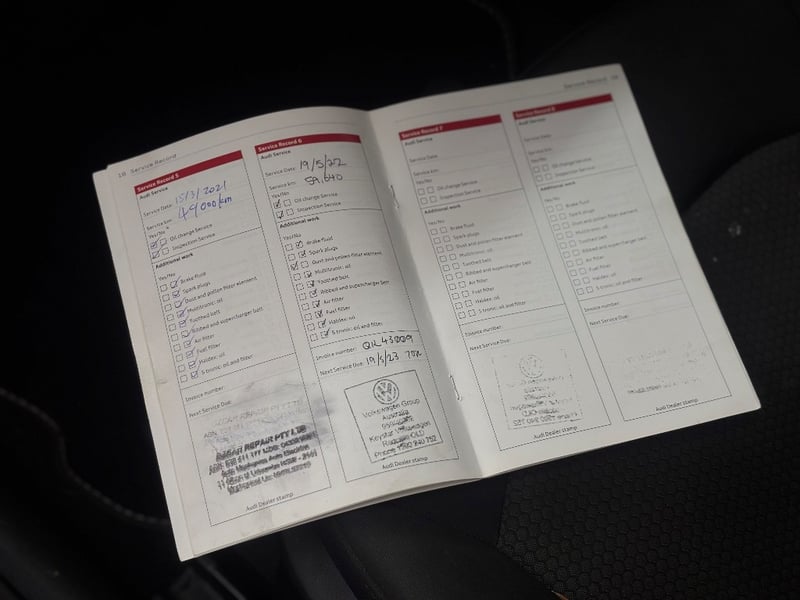 18 Service Record
Service Record 5
Audi Service
Service Date: 15/3/2021
Service km: 49000km
Yes/No
Oil change Service
Inspection Service
Additional work
Yes/No
Brake fluid
Spark plugs
Dust and pollen filter element
Multitronic: oil
Toothed belt
Ribbed and supercharger belt
Air filter
Fuel filter
Haldex: oil
S tronic: oil and filter
Invoice number:
Next Service Due:
REPAIR PTY LTD
Audi Dealer stamp
Service Record 6
Audi Service
Service Date: 19/5/22
Service km: 59,640
Yes/No
Oil change Service
Inspection Service
Additional work
Yes/No
Brake fluid
Spark plugs
Dust and pollen filter element
Multitronic: oil
Toothed belt
Ribbed and supercharger belt
Air filter
Fuel filter
Haldex: oil
S tronic: oil and filter
Invoice number:
Next Service Due: 19/5/23
Volkswagen Group
Australia
Keystar Volkswagen
QLD
Phone
Audi Dealer stamp
Service Record
Service Record 7
Audi Service
Service Date:
Service km:
Yes/No
Oil change Service
Inspection Service
Additional work
Yes/No
Brake fluid
Spark plugs
Dust and pollen filter element
Multitronic: oil
Toothed belt
Ribbed and supercharger belt
Air filter
Fuel filter
Haldex: oil
S tronic: oil and filter
Invoice number:
Next Service Due:
Audi Dealer stamp
Service Record 8
Audi Service
Service Date:
Service km:
Yes/No
Oil change Service
Inspection Service
Additional work
Yes/No
Brake fluid
Spark plugs
Dust and pollen filter element
Multitronic: oil
Toothed belt
Ribbed and supercharger belt
Air filter
Fuel filter
Haldex: oil
S tronic: oil and filter
Invoice number:
Next Service Due:
Audi Dealer stamp